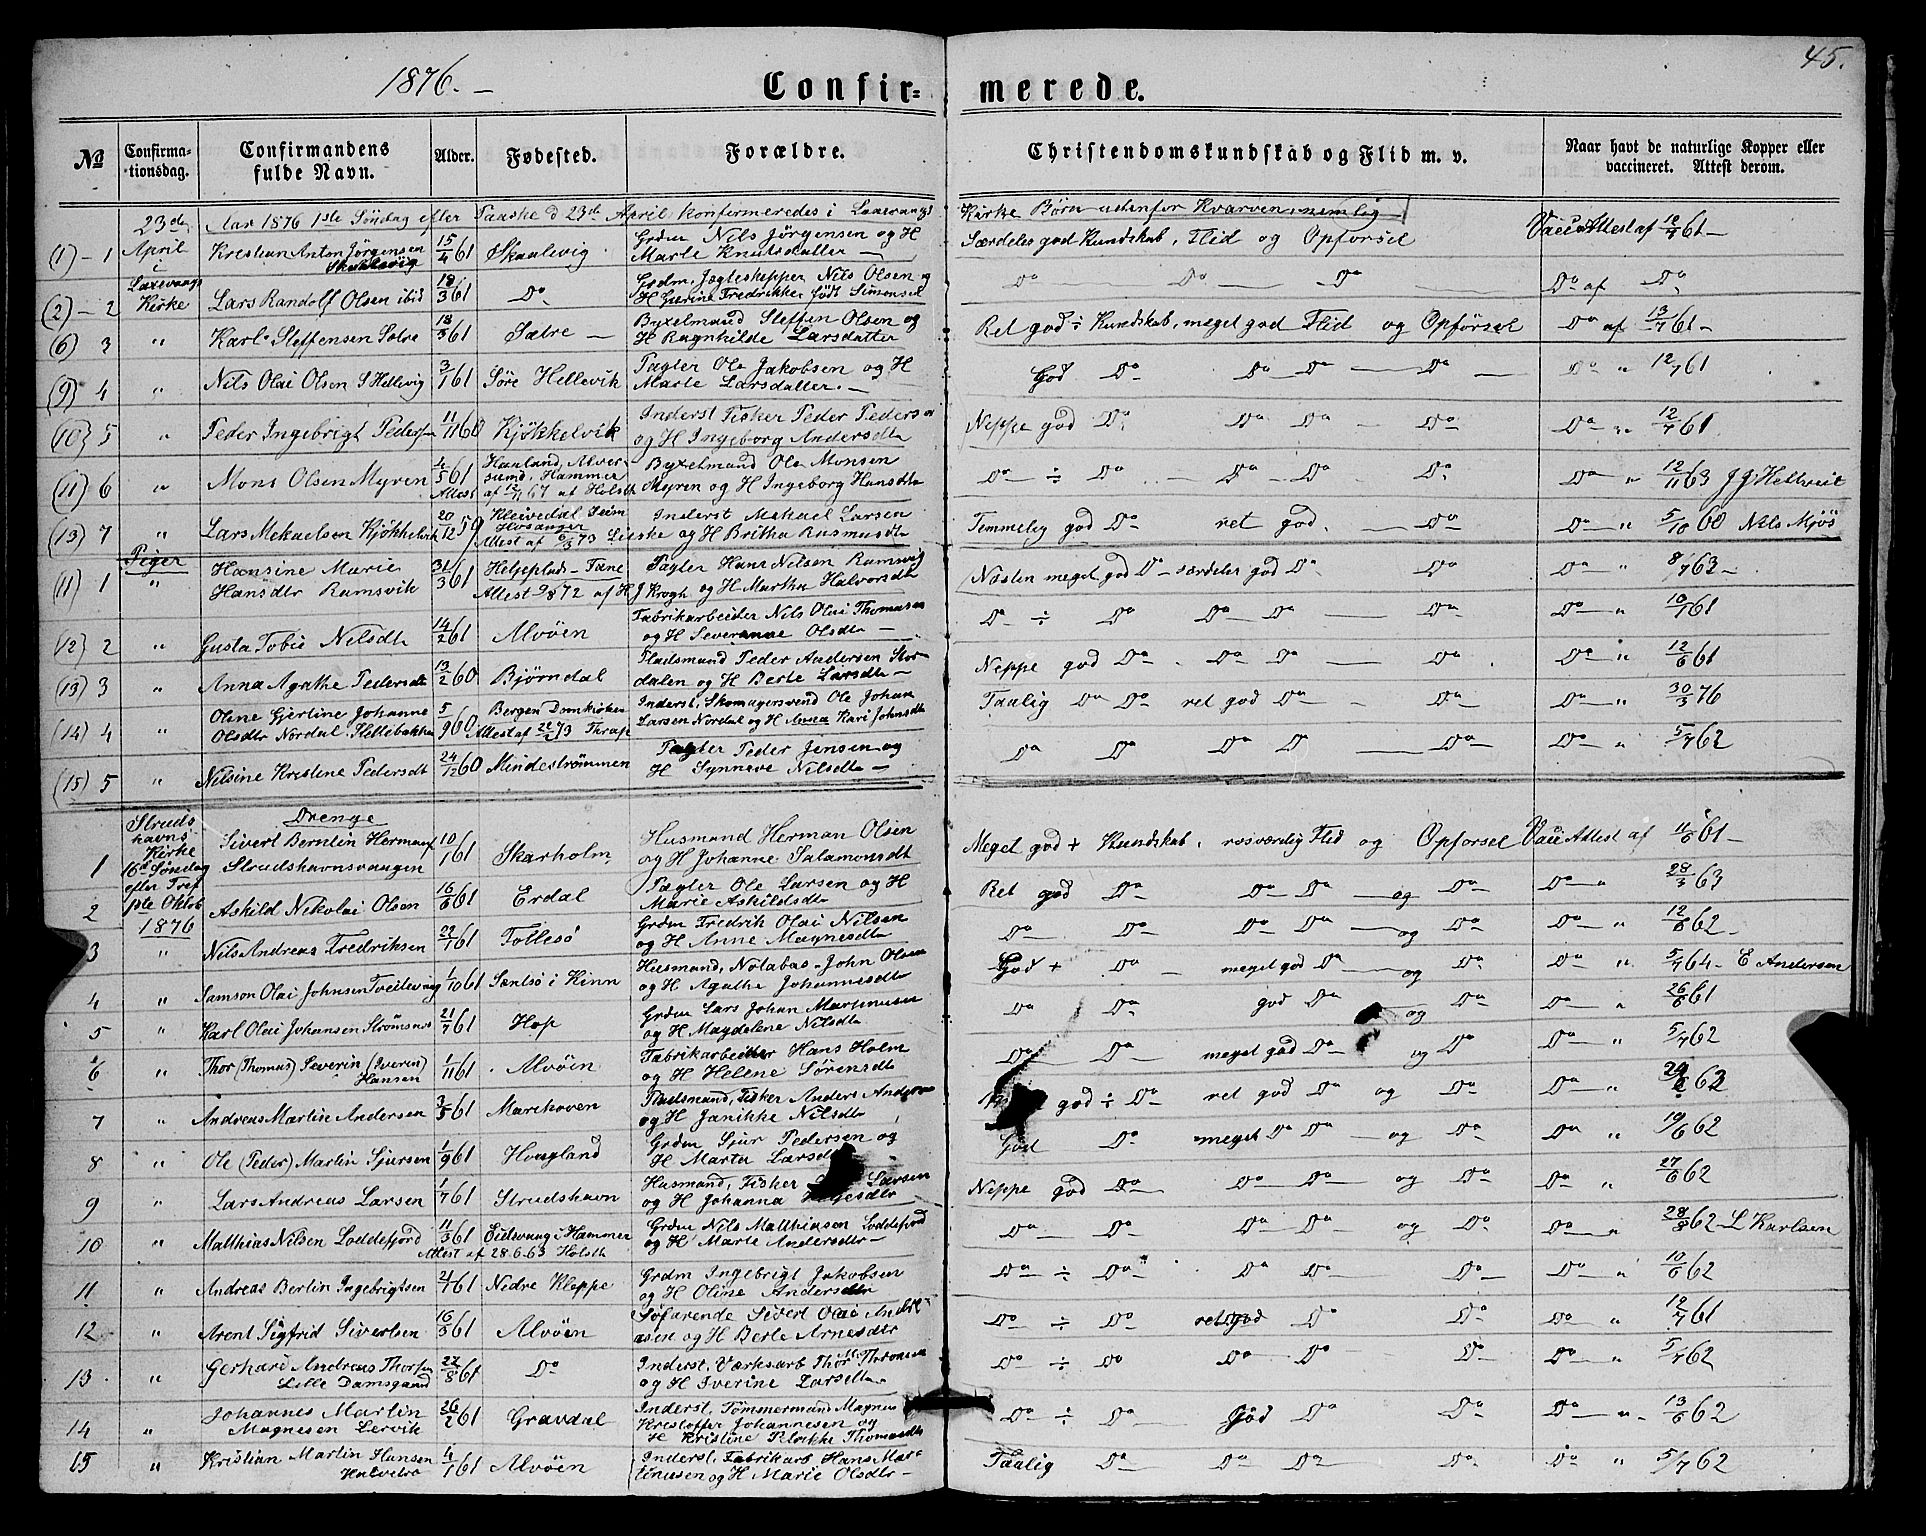 1876. –
Confir= merede.
45.
№
Confirma-
tionsdag.
Confirmandens
fulde Navn.
Alder.
Fødested.
Forældre.
Christendomskundskab og Flid m. v.
Naar havt de naturlige Kopper eller
vaccineret. Attest derom.
23de Aar 1876 1ste Söndag efter Paaske d 23de April konfirmeredes i Laxevaags Kirke Börn udenfor Kvarven nemlig
April
i
Laxevaags
Kirke
(1) – 1 Kristian Anton Jörgensen 15/4 61 Skaalevig Grdm Nils Jörgensen og H Særdeles god Kundskab, Flid og Opførsel Vacc Attest af 61 –
Skaalevig Marte Knutsdatter –
(2) – 2 Lars Randolf Olsen ibid 3 61 Do Grdm. Jægteskepper Nils Olsen og Do Do Do Do af Do
H Fredrikke födt Simonsd
(6) 3 " Karl Steffensen Sætre 18/3 61 Sætre – Byxelmand Steffen Olsen og Ret god ÷ Kundskab, meget god Flid og Opførsel Do af 13/7 61 –
H Ragnhilde Larsdatter
(9) 4 " Nils Olai Olsen S Hellevig 3/1 61 Söre Hellevik Pagter Ole Jakobsen og H God Do Do Do – Do Do " 12/7 61
Marte Larsdatter. –
(10) 5 " Peder Ingebrigt Peders 11/11 60 Kjökkelvik Inderst Fisker Peder Peders Neppe god Do Do Do Do Do " 12/7 61
og H Ingeborg Andersdt
(11) 6 " Mons Olsen Myren 5 61 Haaland, Alver- Byxelmand Ole Monsen Do ÷ Do Do Do Do Do " 12/11 63 J J Hellveit
sund, Hammer Myren og H Ingeborg Hansdt
Attest af 12/11 67 af Holsth
(13) 7 " Lars Mekaelsen Kjökkelvik 20/12 59 Kleivedal Seim Inderst Mekael Larsen Temmelig god Do ret god. Do Do " 5/10 60 Nils Mjös
Hosanger og H Britha Rasmusdt
Attest af 6/3 73
Piger
(11) 1 " Hansine Marie 31/3 61 Helgeplads – Fane Pagter Hans Nilsen Ramsvig Næsten meget god Do særdeles god Do Do Do " 8/7 63 –
Hansdtr Ramsvik Attest 72 af H J Krogh og H Martha Halvorsdt
(12) 2 " Gusta Tobie Nilsdt 14/2 61 Alvöen Fabrikarbeider Nils Olai Thomasen Do ÷ Do Do Do Do Do " 10/1 61
og H Severine Olsdt –
(13) 3 " Anna Agathe Pedersdt 13/2 60 Björndal Pladsmand Peder Andersen Stor- Neppe god Do Do Do Do Do " 12/6 61
dalen og H Berte Larsdt –
(14) 4 " Oline Gjertine Johanne 5/9 60 Bergen Domkirken Inderst, Skomagersvend Ole Johan Taalig Do Do ret god Do Do Do " 30/3 76
Olsdtr Nordal Hellebakken Attest af 22/2 73 Thrap Larsen Nordal og H Anna Kari Johnsdt
(15) 5 " Nilsine Kristine Pedersdt 24/12 60 Mindeströmmen Pagter Peder Jensen og Do Do Do Do Do Do " 5/7 62
H Synneve Nilsdt –
Struds
havns
Kirke
16de Söndag
efter Tref
1ste Oktob
1876
Drenge
1 Sivert Berntin Hermansn 10/1 61 Skarholm Husmand Herman Olsen Meget god + Kundskab, rosværdig Flid og Opførsel Vacc Attest af 11/6 61 –
Strudshavnsvaagen og H Johanne Salamonsdt
2 Askild Nikolai Olsen 16/6 61 Erdal Pagter Ole Larsen og H Ret god Do Do Do – og Do Do " 28/3 63
Marie Askildsdt
3 " Nils Andreas Fredriksen 22/1 61 Follesö Grdm Fredrik Olai Nilsen Do Do Do Do – og Do Do " 12/6 62 –
og H Anne Magnesdt
4 " Samson Olai Johnsen Tveitevaag 1/10 61 Sæntsö i Kinn Husmand, Notabas. John Olsen God + Do meget god Do og Do Do " 5/7 64 – E Andersen
og H Agathe Johannesdt
5 " Karl Olai Johansen Strömsnes 21/7 61 Hop Grdm Lars Johan Martinusen Do Do god Do og Do Do " 26/6 61
og H Magdelene Nilsdt
6 " Thor (Thomas) Severin (Iverin) 1/11 61 Alvöen Fabrikarbeider Hans Holm Do Do meget god Do og Do Do " 5/7 62
Hansen og H Helene Sörensdt
7 " Andreas Martin Andersen 3/5 61 Marihoven Pladsmand, Fisker Anders Anders god ÷ Do ret god Do og Do Do " 62
og H Janikke Nilsdt
8 " Ole (Peder) Martin Sjursen 1/9 61 Haagland Grdm Sjur Pedersen og God Do meget Do Do og Do Do " 19/6 62
H Marta Larsdt
9 " Lars Andreas Larsen 1/7 61 Strudshavn Husmand, Fisker Larsen Neppe god Do Do Do og Do Do " 27/6 62
og H Johanna
10 " Matthias Nilsen Loddefjord 11/3 61 Eidsvaag i Hammer Grdm Nils Matthiasen Loddefjord Do Do Do Do og Do Do " 28/8 62 – L Karlsen
Attest af 28.6.63 Holsth og H Marte Andersdtr
11 " Andreas Bertin Ingebrigtsen 2/4 61 Nedre Kleppe Grdm Ingebrigt Jakobsen Do ÷ Do Do Do Do Do " 10/6 62
og H Oline Andersdtr
12 " Arent Sigfrid Sivertsen 16/5 61 Alvöen Söfarende Sivert Olai Andre Do ÷ Do ret god Do Do Do " 12/7 61
asen og H Berte Arnesdtr
13 " Gerhard Andreas Thorsen 22/8 61 Do Inderst, Værksarb Thor Thorsen Do ÷ Do Do Do Do Do " 5/7 62
Lille Damsgaard og H Iverine Larsdt
14 " Johannes Martin 26/2 61 Gravdal Inderst, Tömmermand Magnus Do ÷ Do God Do Do Do " 13/6 62
Magnesen Lervik Kristoffer Johannesen og
H Kristine Rebekka Thomasdt
15 " Kristian Martin Hansen 1/1 61 Alvöen Inderst, Fabrikarb Hans Mar- Taalig Do Do Do Do Do " 5/7 62
tinusen og H Marie Olsdtr –